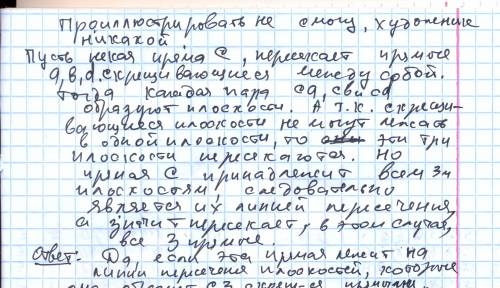 Проиллюстрировать не смогу, художник
никакой.
Пусть некая прямая С, пересекает прямые
a, b, d. скрещивающиеся между собой.
Тогда каждая пара ca, cb и cd
образуют плоскости. А т.к. скрещи-
вающиеся плоскости не могут лежать
в одной плоскости, то эти три
плоскости пересекаются. Но
прямая С принадлежит всем 3м
плоскостям, следовательно
является их линией пересечения,
а значит пересекает, в этом случае,
все 3 прямые.
Ответ: Да, если эта прямая лежит на
линии пересечения плоскостей, которые
она образует с 3 скрещ-ся прямыми.